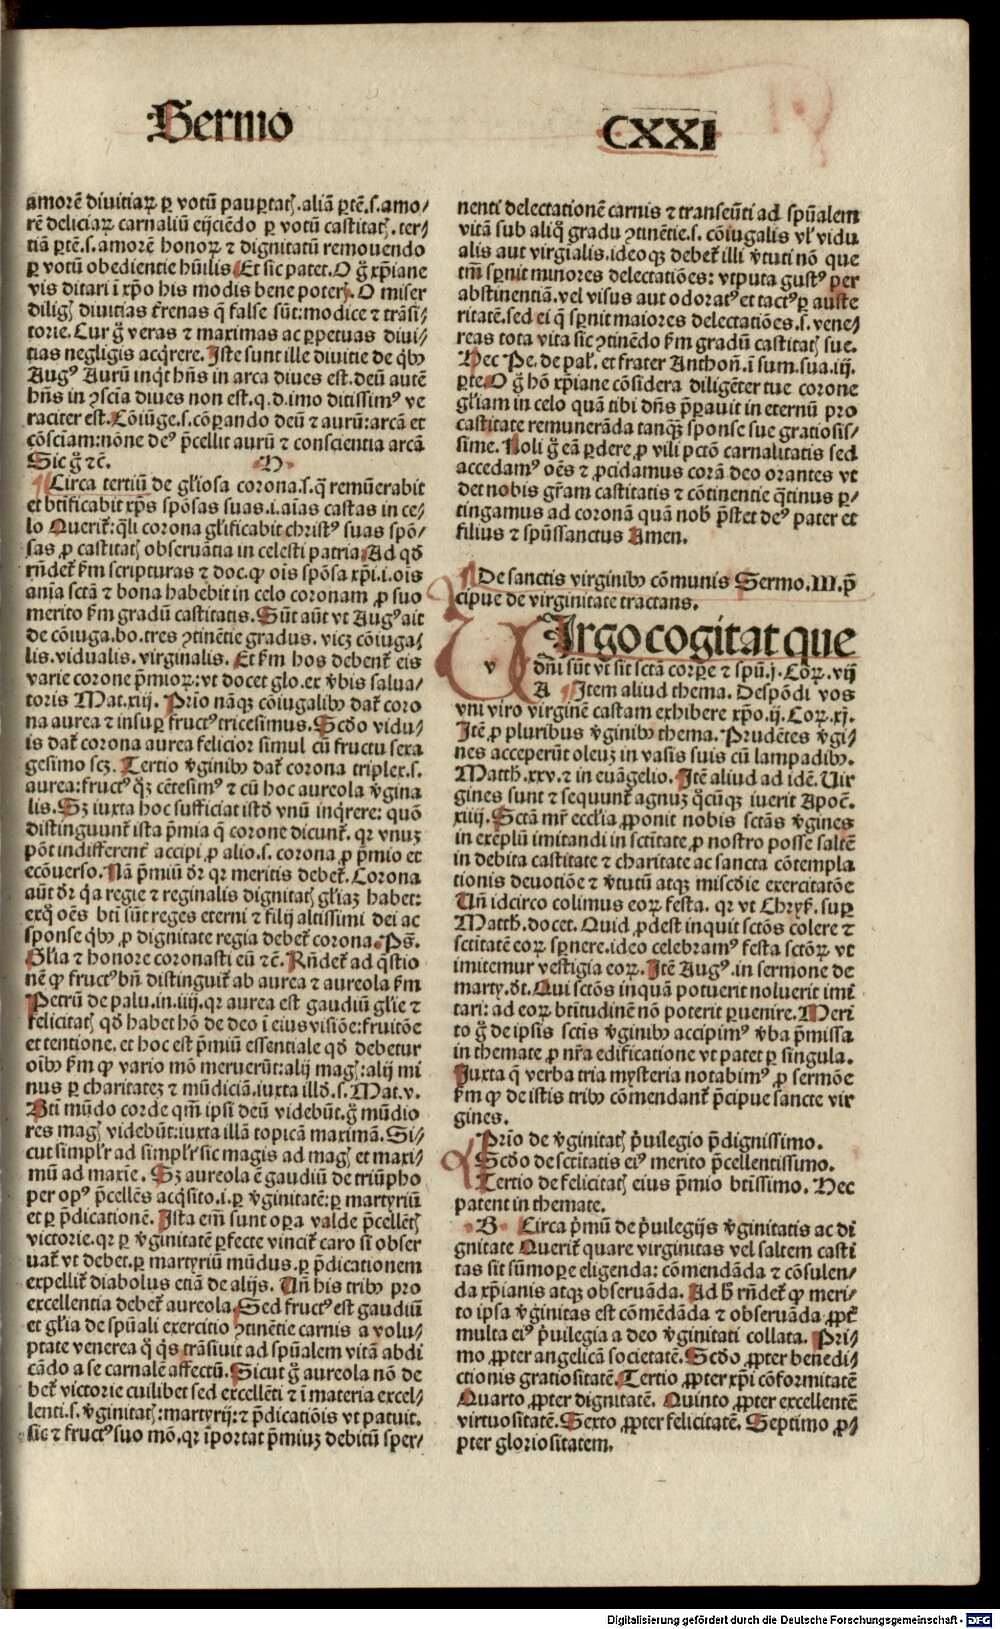 Sermo
CXXI
amorē divitiaꝝ ꝑ votū pauꝑtatꝭ. aliā ꝑtē.s.amo⸗
rē deliciaꝝ carnaliū eijciēdo ꝑ votū castitatꝭ. ter⸗
tiā ꝑtē.s.amorē honoꝝ ⁊ dignitatū remouendo
ꝑ votū obedientie hūilis. Et sic patet. O g̃ xp̄iane
vis ditari ī xp̄o his modis bene poterꝭ. O miser
diligꝭ diuitias t̃renas q̄ false sūt: modice ⁊ trāsi⸗
torie. Cur g̃ veras ⁊ maximas ac ꝑpetuas diui⸗
tias negligis acq̇rere. Iste sunt ille diuitie de qͥbꝰ
Augꝰ Aurū inqͥt hn̄s in arca diues est. deū autē
hn̄s in ꝯscīa diues non est. q.d.imo ditissimꝰ ve
raciter est. Cōiūge.s.cōꝑando deū ⁊ aurū: arcā et
cōsciam: nōne deꝰ p̄cellit aurū ⁊ conscientia arcā
Sic g̃ ⁊c̄.
Circa tertiū de gl̄iosa corona.s.q̄ remūerabit
et btīficabit xp̄s spōsas suas.i.aīas castas in ce⸗
lo Querit̃: q̄li corona gl̄ificabit christꝰ suas spō⸗
sas ꝑ castitatꝭ obseruātia in celesti patria. Ad qd̄
rn̄det̃ km̄ scripturas ⁊ doc. ꝙ oīs spōsa xp̄i.i.oīs
anīa sctā ⁊ bona habebit in celo coronam ꝓ suo
merito km̄ gradū castitatis. Sūt aūt vt Augꝰ ait
de cōiuga.bo.tres ꝯtinētie gradus. vicꝫ cōiuga⸗
lis. vidualis. virginalis. Et km̄ hos debent̃ eis
varie corone p̄mioꝝ: vt docet glo.ex v̄bis salua⸗
toris Mat.xiij. Prīo nāqꝫ cōiugalibꝰ dat̃ coro
na aurea ⁊ insuꝑ fructꝰ tricesimus. Scd̄o vidu⸗
is dat̃ corona aurea felicior simul cū fructu sexa
gesimo scꝫ. Tertio v̄ginibꝰ dat̃ corona triplex.s.
aurea: fructꝰ qͥꝫ cētesimꝰ ⁊ cū hoc aureola v̄gina
lis. Sꝫ iuxta hoc sufficiat istd̄ vnū inq̇rere: quō
distinguunt̃ ista p̄mia q̄ corone dicunt̃. qꝛ vnuꝫ
pōt indifferent̃ accipi ꝓ alio.s. corona ꝓ p̄mio et
ecōuerso. Nā p̄miū dr̄ qꝛ meritis debet̃. Corona
aūt dr̄ qꝛ a regie ⁊ reginalis dignitatꝭ gl̄iaꝫ habet:
exqͦ oēs bti sūt reges eterni ⁊ filij altissimi dei ac
sponse qͥbꝰ ꝓ dignitate regia debet̃ corona. Ps̄.
Gl̄ia ⁊ honore coronasti eū ⁊c̄. Rn̄det̃ ad q̄stio
nē ꝙ fructꝰ bn̄ distinguit̃ ab aurea ⁊ aureola km̄
Petrū de palu.in.iiij. qꝛ aurea est gaudiū gl̄ie ⁊
felicitatꝭ qd̄ habet hō de deo ī eius visiōe: fruitōe
et tentione. et hoc est p̄miū essentiale qd̄ debetur
oībꝰ km̄ ꝙ vario mō meruerūt: alij magꝭ: alij mi
nus ꝑ charitateꝫ ⁊ mūdiciā. iuxta illd̄.s. Mat.v.
Bti mūdo corde qm̄ ipsi deū videbūt. g̃ mūdio
res magꝭ videbūt: iuxta illā topicā maximā. Si⸗
cut simpl̄r ad simpl̄r sic magis ad magꝭ et maxi⸗
mū ad maxīe. Sꝫ aureola ē gaudiū de triūpho
per opꝰ p̄cellēs acq̇sito.i.ꝑ v̄ginitatē: ꝑ martyriū
et ꝑ p̄dicationē. Ista em̄ sunt oꝑa valde p̄cellētꝭ
victorie. qꝛ ꝑ v̄ginitatē ꝑfecte vincit̃ caro si obser
uat̃ vt debet. ꝑ martyriū mūdus. ꝑ p̄dicationem
expellit̃ diabolus etiā de alijs. Un̄ his tribꝰ pro
excellentia debet̃ aureola. Sed fructꝰ est gaudiū
et gl̄ia de spūali exercitio ꝯtinētie carnis a volu⸗
ptate venerea qͦ qͥs trāsiuit ad spūalem vitā abdi
cādo a se carnalē affectū. Sicut g̃ aureola nō de
bet̃ victorie cuilibet sed excellēti ⁊ ī materia excel⸗
lenti.s. v̄ginitatꝭ: martyrij: ⁊ p̄dicatiōis vt patuit.
sic ⁊ fructꝰ suo mō. qꝛ īportat p̄miuꝫ debitū sper⸗
nenti delectationē carnis ⁊ transeūti ad spūalem
vitā sub aliqͦ gradu ꝯtinētie.s. cōiugalis vl̄ vidu
alis aut virgialis. ideoqꝫ debet̃ illi v̄tuti nō que
tm̄ sꝑnit minores delectatiōes: vtputa gustꝰ per
abstinentiā. vel visus aut odoratꝰ et tactꝰ ꝑ auste
ritatē. sed ei q̄ sꝑnit maiores delectatiōes.s. vene⸗
reas tota vita sic ꝯtinēdo km̄ gradū castitatꝭ sue.
Hec Pe. de pal. et frater Anthon̄. ī sum. sua.iij.
ꝑte. O g̃ hō xp̄iane cōsidera diligēter tue corone
gl̄iam in celo quā tibi dn̄s p̄parauit in eternū pro
castitate remunerāda tanqꝫ sponse sue gratiosis⸗
sime. Noli g̃ eā ꝑdere ꝓ vili pctō carnalitatis sed
accedamꝰ oēs ⁊ ꝓcidamus corā deo orantes vt
det nobis gr̄am castitatis ⁊ cōtinentie qͣtinus ꝑ⸗
tingamus ad coronā quā nob̄ p̄stet deꝰ pater et
filius ⁊ spūssanctus Amen.
De sanctis virginibꝰ cōmunis Sermo.III. p̄
cipue de virginitate tractans.
VIrgo cogitat que
dn̄i sūt vt sit sctā corꝑe ⁊ spū.j. Coꝝ.vij
A Item aliud thema. Despōdi vos
vni viro virginē castam exhibere xp̄o.ij. Coꝝ.xj.
Itē ꝓ pluribus v̄ginibꝰ thema. Prudētes v̄gi⸗
nes acceperūt oleuꝫ in vasis suis cū lampadibꝰ.
Matth.xxv. ⁊ in euāgelio. Itē aliud ad idē. Uir
gines sunt ⁊ sequunt̃ agnuꝫ qͦcūqꝫ iuerit Apoc̄.
xiiij. Sctā mr̄ eccl̄ia ꝓponit nobis sctās v̄gines
in exēplū imitandi in sctītate ꝓ nostro posse saltē
in debita castitate ⁊ charitate ac sancta cōtempla
tionis deuotiōe ⁊ v̄tutū atqꝫ miscd̄ie exercitatōe
Un̄ idcirco colimus eoꝝ festa. qꝛ vt Chryꝭ. suꝑ
Matth. docet. Quid ꝓdest inquit sctōs colere ⁊
sctītatē eoꝝ sꝑnere. ideo celebramꝰ festa sctōꝝ vt
imitemur vestigia eoꝝ. Itē Augꝰ. in sermone de
marty. dt. Qui sctōs inquā potuerit noluerit imi
tari: ad eoꝝ btītudinē nō poterit ꝑuenire. Meri
to g̃ de ipsis sctīs v̄ginibꝰ accipimꝰ v̄ba p̄missa
in themate ꝓ nr̄a edificatione vt patet ꝑ singula.
Iuxta q̄ verba tria mysteria notabimꝰ ꝓ sermōe
km̄ ꝙ de istis tribꝰ cōmendant̃ p̄cipue sancte vir
gines.
Prīo de v̄ginitatꝭ p̄uilegio p̄dignissimo.
Scd̄o de sctītatis eiꝰ merito p̄cellentissimo.
Tertio de felicitatꝭ eius p̄mio btīssimo. Hec
patent in themate.
B Circa p̄mū de p̄uilegijs v̄ginitatis ac di
gnitate Querit̃ quare virginitas vel saltem casti
tas sit sūmoꝑe eligenda: cōmendāda ⁊ cōsulen⸗
da xp̄ianis atqꝫ obseruāda. Ad h̄ rn̄det̃ ꝙ meri⸗
to ipsa v̄ginitas est cōmēdāda ⁊ obseruāda ꝓpt̃
multa eiꝰ p̄uilegia a deo v̄ginitati collata. Pri⸗
mo ꝓpter angelicā societatē. Scd̄o ꝓpter benedi⸗
ctionis gratiositatē. Tertio ꝓpter xp̄i cōformitatē
Quarto ꝓpter dignitatē. Quinto ꝓpter excellentē
virtuositatē. Sexto ꝓpter felicitatē. Septimo ꝓ⸗
pter gloriositatem.
Digitalisierung gefördert durch die Deutsche Forschungsgemeinschaft - DFG